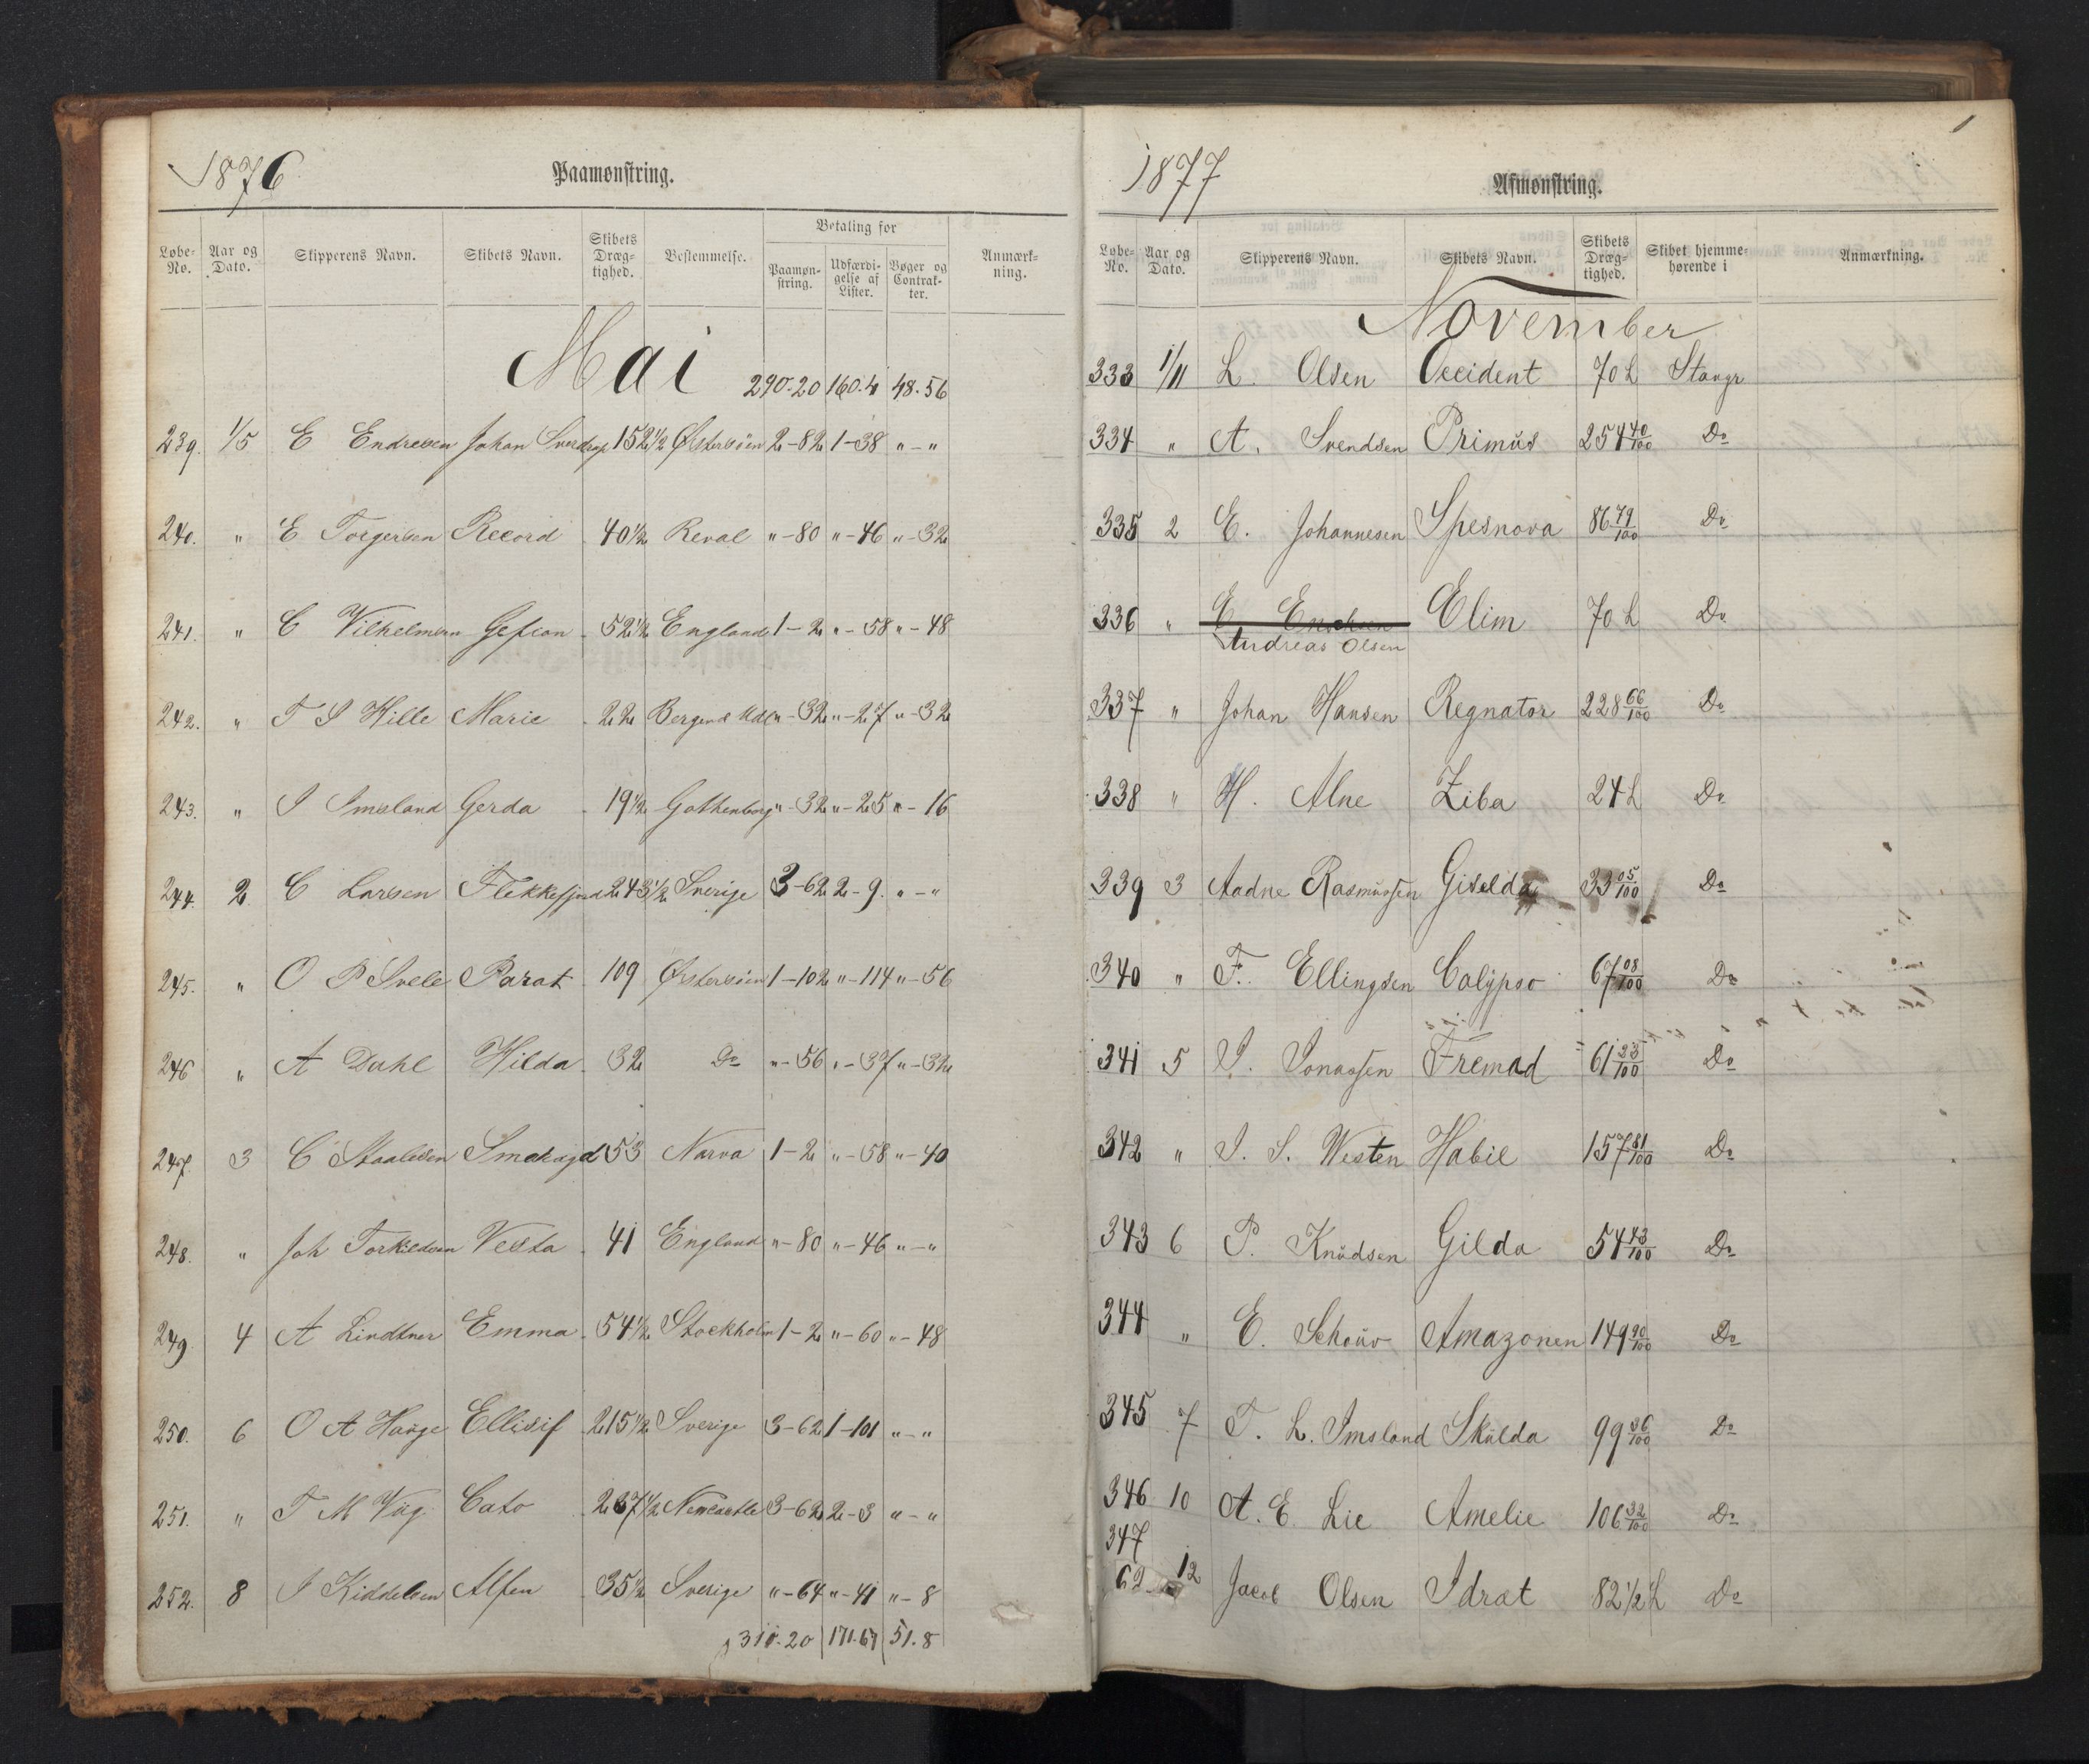 1876 Paamønstring.
Løbe-No. Aar og Dato. Skipperens Navn. Skibets Navn. Skibets Dræg-tighed. Bestemmelse. Betaling for Paamøn-string. Udfærdi-gelse af Lister. Bøger og Contrak-ter. Anmærk-ning.
Mai 290.20 160.4 48.56
239. 1/5 E Endresen Johan Sverdrup 152 1/2 Østersøen 2-82 1-38 "-"
240. " E Torgersen Record 40 1/2 Reval "-80 "-46 "-32
241. " C Vilhelmsen Gefion 52 1/2 England 1-2 "-58 "-48
242. " T S Hille Marie 22 Bergen "-32 "-27 "-32
243. " I Imsland Gerda 19 1/2 Gothenborg "-32 "-25 "-16
244. 2 C Larsen Flekkefjord 243 1/2 Sverige 3-62 2-9. "-"
245. " O P Svele Parat 109 Østersøen 1-102 "-114 "-56
246 " A Dahl Hilda 32 Do "-56 "-37 "-32
247. 3 C Staalesen 53 Narva 1-2 "-58 "-40
248. " Joh Torkildsen Vesta 41 England "-80 "-46 "-"
249. 4 A Lindtner Emma 54 1/2 Stockholm 1-2 "-60 "-48
250. 6 O A Hauge Ellisif 215 1/2 Sverige 3-62 1-101 "-"
251. " T M Vig Cato 237 1/2 Newcastle 3-62 2-3 "-"
252. 8 I Kiddelsen Alfen 35 1/2 Sverige "-64 "-41 "-8
310.20 171.67 51.8
1877 Afmønstring. 1
Løbe-No. Aar og Dato. Skipperens Navn. Skibets Navn. Skibets Dræg-tighed. Skibet hjemme-hørende i Anmærkning.
November
333 1/11 L. Olsen Occident 70 L Stavgr
334 " A. Svendsen Primus 254 40/100 Do
335 2 E. Johannesen Spesnova 86 79/100 Do
336 " E. Erichsen Elim 70 L Do
Andreas Olsen
337 " Johan Hansen Regnator 228 66/100 Do
338 " H. Alne Ziba 24 L Do
339 3 Aadne Rasmussen Giselda 33 05/100 Do
340 " F. Ellingsen Calypso 67 08/100 Do
341 5 I. Jonassen Fremad 61 23/100 Do
342 " I. S. Westen Habil 157 81/100 Do
343 6 P. Knudsen Gilda 54 43/100 Do
344 " E. Schouv Amazonen 149 90/100 Do
345 7 T. L. Imsland Skulda 99 36/100 Do
346 10 A. E. Lie Amelie 106 32/100 Do
347
62 12 Jacob Olsen Idræt 82 1/2 L Do